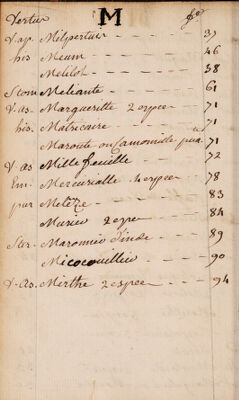 Vertus M fo
V. ap. Milpertuis - - - 37
his Meum - - - 46
Melilot - - - 58
Stom Meliante - - - 61
V. as. Margueritte 2 espec - 71
his. Matricaire - - - 71
Maroute ou Camomille pua. 71
V. as Mille feuille - - - 72
Em. Mercurialle 4 espec - 78
pur Meleze - - - 83
Murier 2 espe - - - 84
Ster. Maronnier d'inde - - 89
Micocoullier - - - 90
V. as. Mirthe 2 espec - - 94